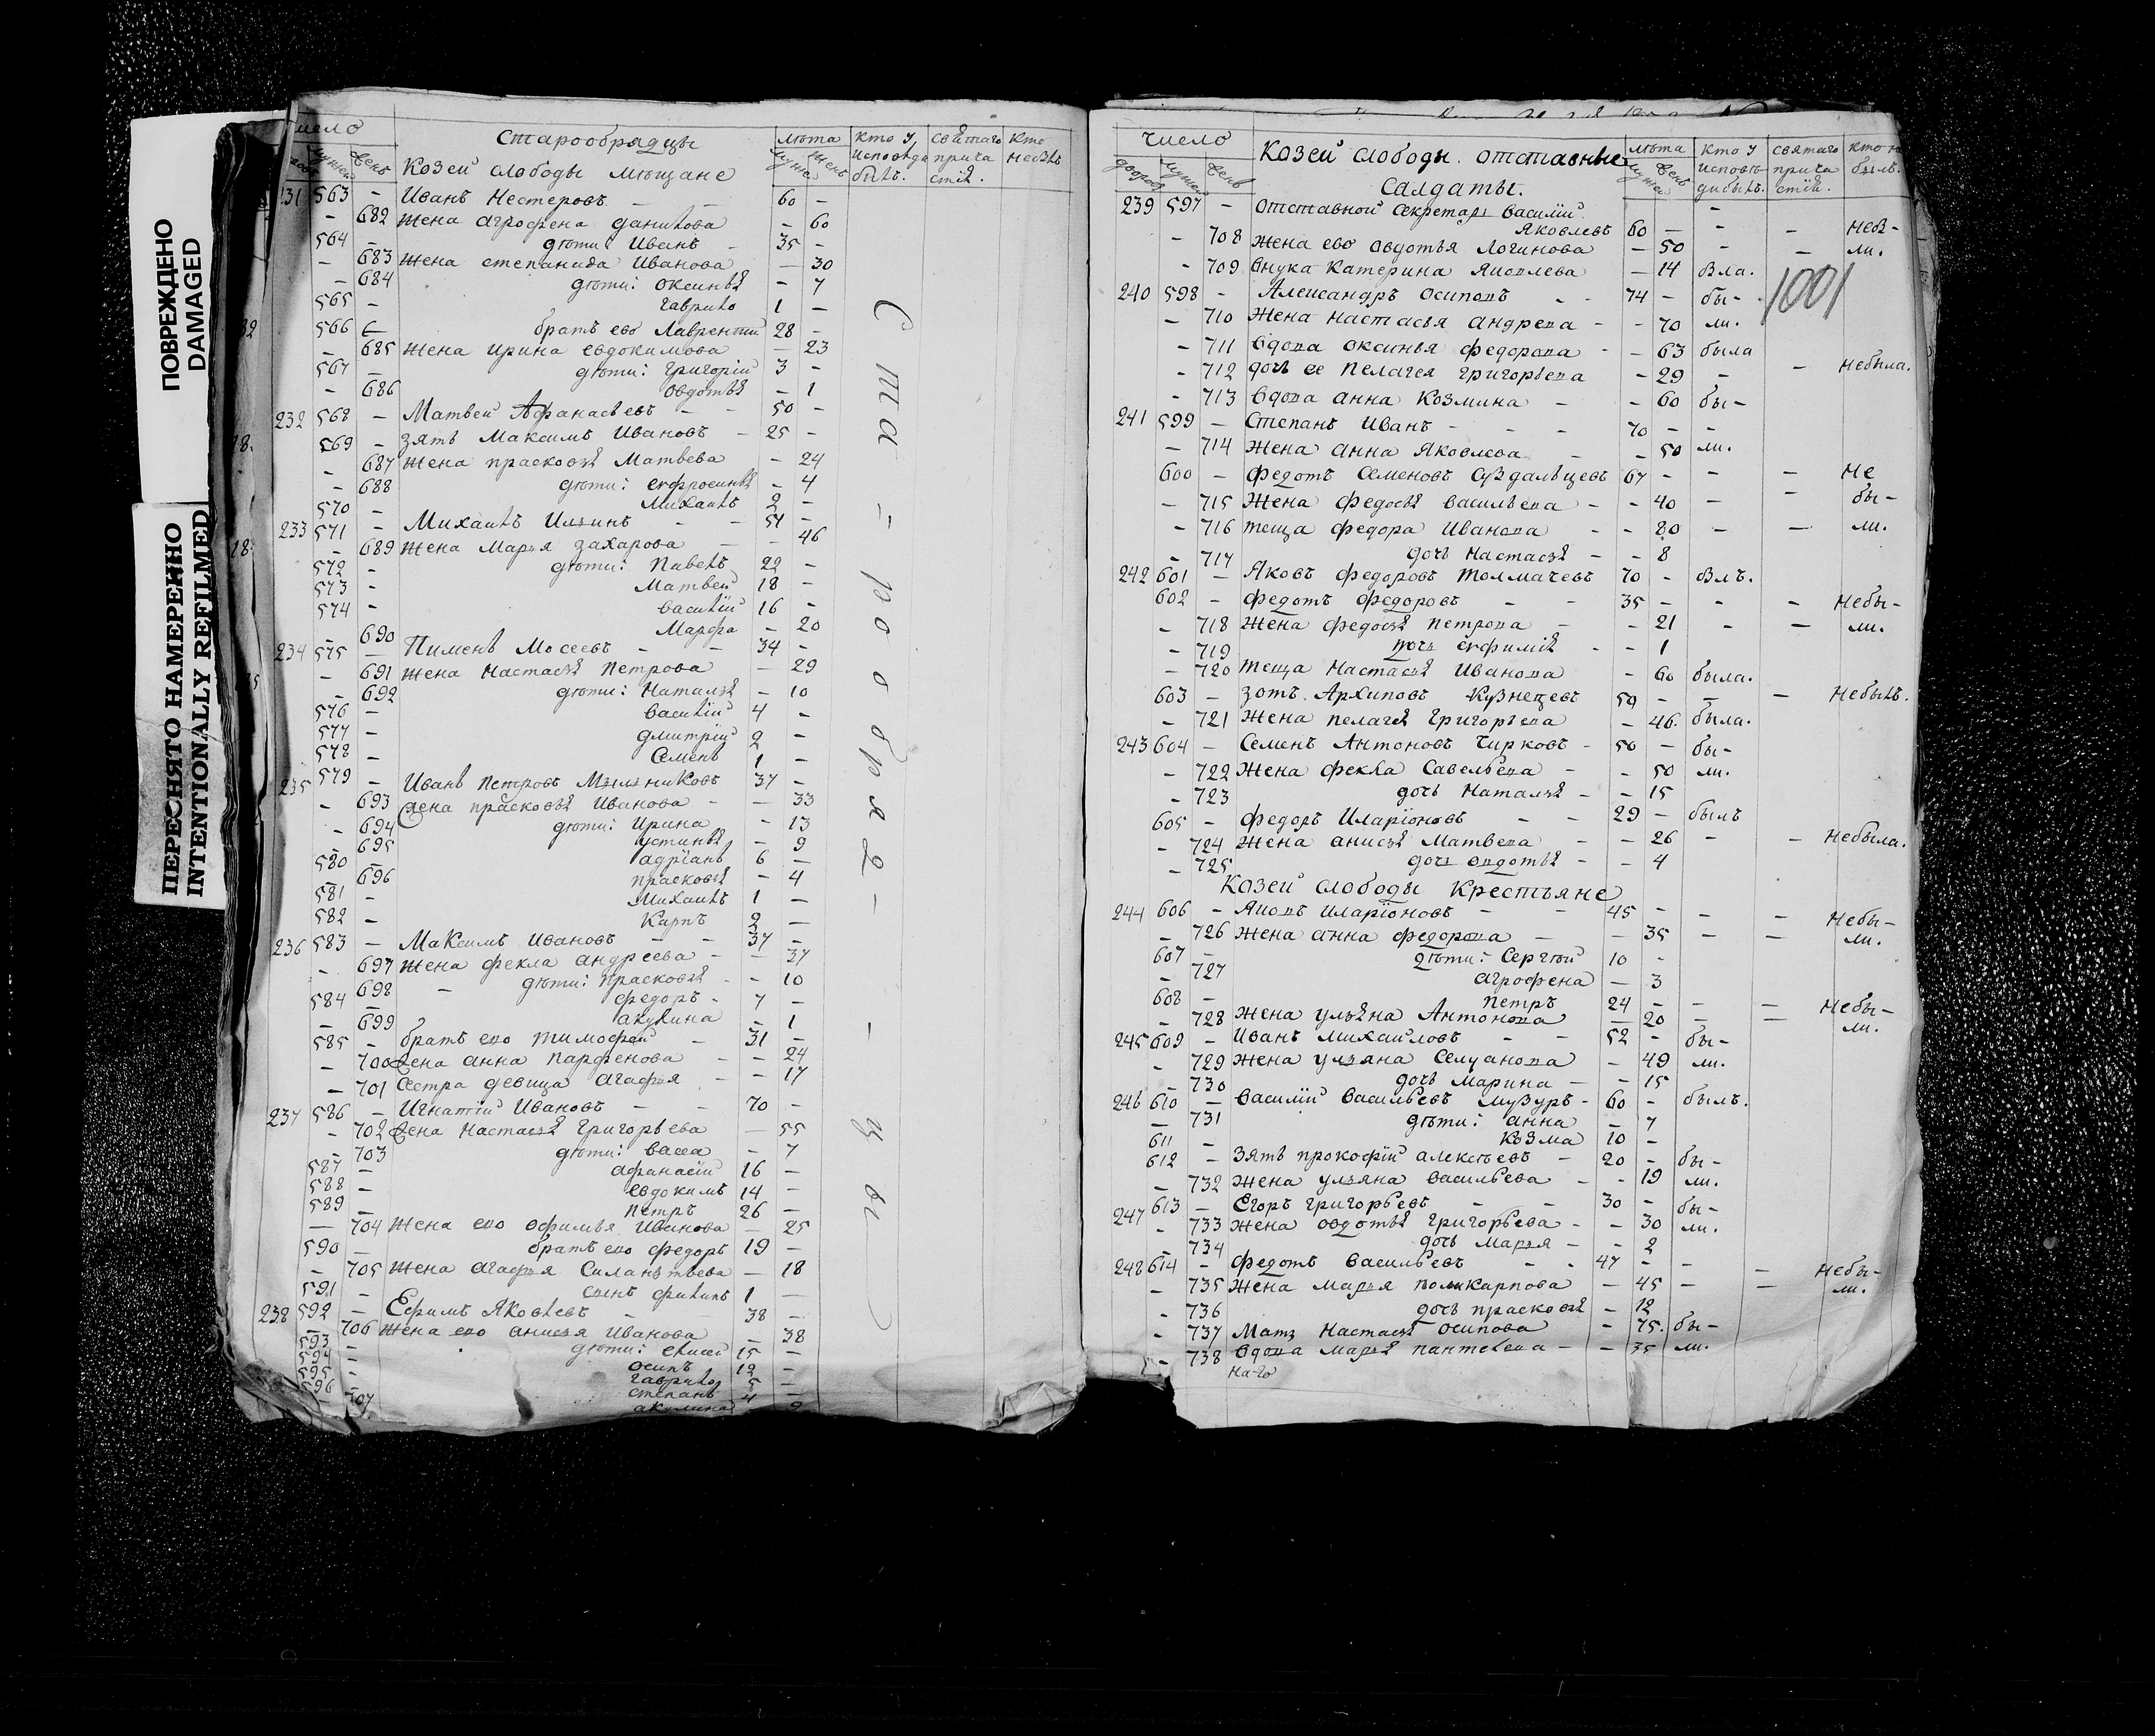 ПОВРЕЖДЕНО
DAMAGED
ПЕРЕСНЯТО НАМЕРЕННО
INTENTIONALLY REFILMED
число
Старообрядцы
Козей слободы мѣщане
лѣта
мужеск женск
кто у исповѣди былъ.
святаго причастія
кто небылъ
Старообрядцы
231 563 – Иванъ Нестеровъ – – 60 –
– 682 жена агрофена данилова – 60
564 – дѣти: Иванъ – 35 –
– 683 жена степанида Иванова – 30
– 684 дѣти: оксинья – 7
565 – гаврило 1 –
566 – братъ ево Лаврентий 28 –
– 685 жена ирина евдокимова – 23
567 – дѣти: григорій 3 –
– 686 овдотья – 1
232 568 – Матвей Афанасьевъ – – 50 –
569 – зять Максимъ Ивановъ – 25 –
– 687 жена прасковья Матвева – 24
– 688 дѣти: ефросинья – 4
570 – Михаилъ 2 –
233 571 – Михаилъ Ильинъ – – 51 –
– 689 жена Марья захарова – – 46
572 – дѣти: Павелъ 22 –
573 – Матвей 18 –
574 – василій 16 –
– 690 Марфа – 20
234 575 – Пименъ Мосеевъ – – 34 –
– 691 жена Настасья Петрова – 29
– 692 дѣти: Наталья – 10
576 – василій 4 –
577 – дмитрій 2 –
578 – Семенъ 1 –
235 579 – Иванъ Петровъ Мыльниковъ 37 –
– 693 жена прасковья Иванова – – 33
– 694 дѣти: Ирина – 13
– 695 устинья – 9
580 – адріанъ 6 –
– 696 прасковья – 4
581 – Михаилъ 1 –
582 – Карпъ 2 –
236 583 – Максимъ Ивановъ – – 37 –
– 697 жена фекла андреева – – 37
– 698 – дѣти: прасковья – – 10
584 – федоръ – 7 –
– 699 акулина – 1
585 – братъ ево тимофей – 31 –
– 700 жена анна парфенова – – 24
– 701 сестра девица агафья – – 17
237 586 – Игнатій Ивановъ – – 70 –
– 702 жена Настасья григорьева – 55
– 703 дѣти: васса – 7
587 – афанасій 16 –
588 – евдокимъ 14 –
589 – петръ 26 –
– 704 жена ево офимья Иванова – 25
590 – братъ ево федоръ 19 –
– 705 жена агафья Силантьева – 18
591 – сынъ филипъ 1 –
238 592 – Ефимъ Яковлевъ – – 38 –
– 706 жена ево анисья Иванова – 38
593 – дѣти: елисей 15 –
594 – осипъ 12 –
595 – гаврило 5 –
596 – степанъ 4 –
– 707 акулина – 2
число
дворовъ мужес женс
Козей слободы. отставные
Салдаты.
лѣта
мужес женс
кто у исповѣди былъ.
святаго причастія.
кто не былъ.
1001
239 597 – отставной секретарь василій
Яковлевъ 60 – – – небы-
– 708 жена ево овдотья Логинова – 50 – – ли.
– 709 внука катерина Яковлева – 14 была.
240 598 – Александръ осиповъ – – 74 – бы-
– 710 жена настасья андрева – – 70 ли.
– 711 вдова оксинья федорова – – 63 была
– 712 дочь ее пелагея григорьева – 29 – – небыла.
– 713 вдова анна козмина – – 60 бы-
241 599 – Степанъ Иванъ – – – 70 – –
– 714 жена анна Яковлева – – 50 ли.
600 – федотъ Семеновъ суздальцевъ 67 – – – не
– 715 жена федосья васильева – – 40 – – бы-
– 716 теща федора Иванова – – 80 – – ли.
– 717 дочь Настасья – – 8
242 601 – Яковъ федоровъ толмачевъ 70 – былъ.
602 – федотъ федоровъ – – 35 – – – небы-
– 718 жена федосья петрова – – 21 – – ли.
– 719 дочь ефимія – – 1
– 720 теща Настасья Иванова – 60 была.
603 – зотъ. Архиповъ кузнецевъ 59 – – – небылъ.
– 721 жена пелагея григорьева – 46. была.
243 604 – Семенъ Антоновъ Чирковъ – 50 – бы-
– 722 жена фекла Савельева – – 50 ли.
– 723 дочь Наталья – – 15
605 – федоръ Иларіоновъ – – 29 – былъ
– 724 жена анисья Матвева – – 26 – – небыла.
– 725 дочь овдотья – – 4
Козей слободы крестьяне
244 606 – Яковъ иларіоновъ – – 45 – – – небы-
– 726 жена анна федорова – – 35 – – ли.
607 – дѣти: Сергѣй 10 –
– 727 агрофена – 3
608 – петръ 24 – – – небы-
– 728 жена ульяна Антонова – 20 – – ли.
245 609 – Иванъ Михайловъ – – 52 – бы-
– 729 жена ульяна Селуанова – 49 ли.
– 730 дочь Марина – – 15
246 610 – василій васильевъ музуръ – 60 – былъ.
– 731 дѣти: анна – 7
611 – козма 10 –
612 – зять прокофій алексѣевъ – 20 – бы-
– 732 жена ульяна васильева – – 19 ли.
247 613 – Егоръ григорьевъ – – 30 – бы-
– 733 жена овдотья григорьева – – 30 ли.
– 734 дочь Марья – – 2
248 614 – федотъ васильевъ – – 47 – – – небы-
– 735 жена Марья поликарпова – 45 – – ли.
– 736 дочь прасковья – 12
– 737 Мать Настасья осипова – 75. бы-
– 738 вдова Марья пантелева – – 35 ли.